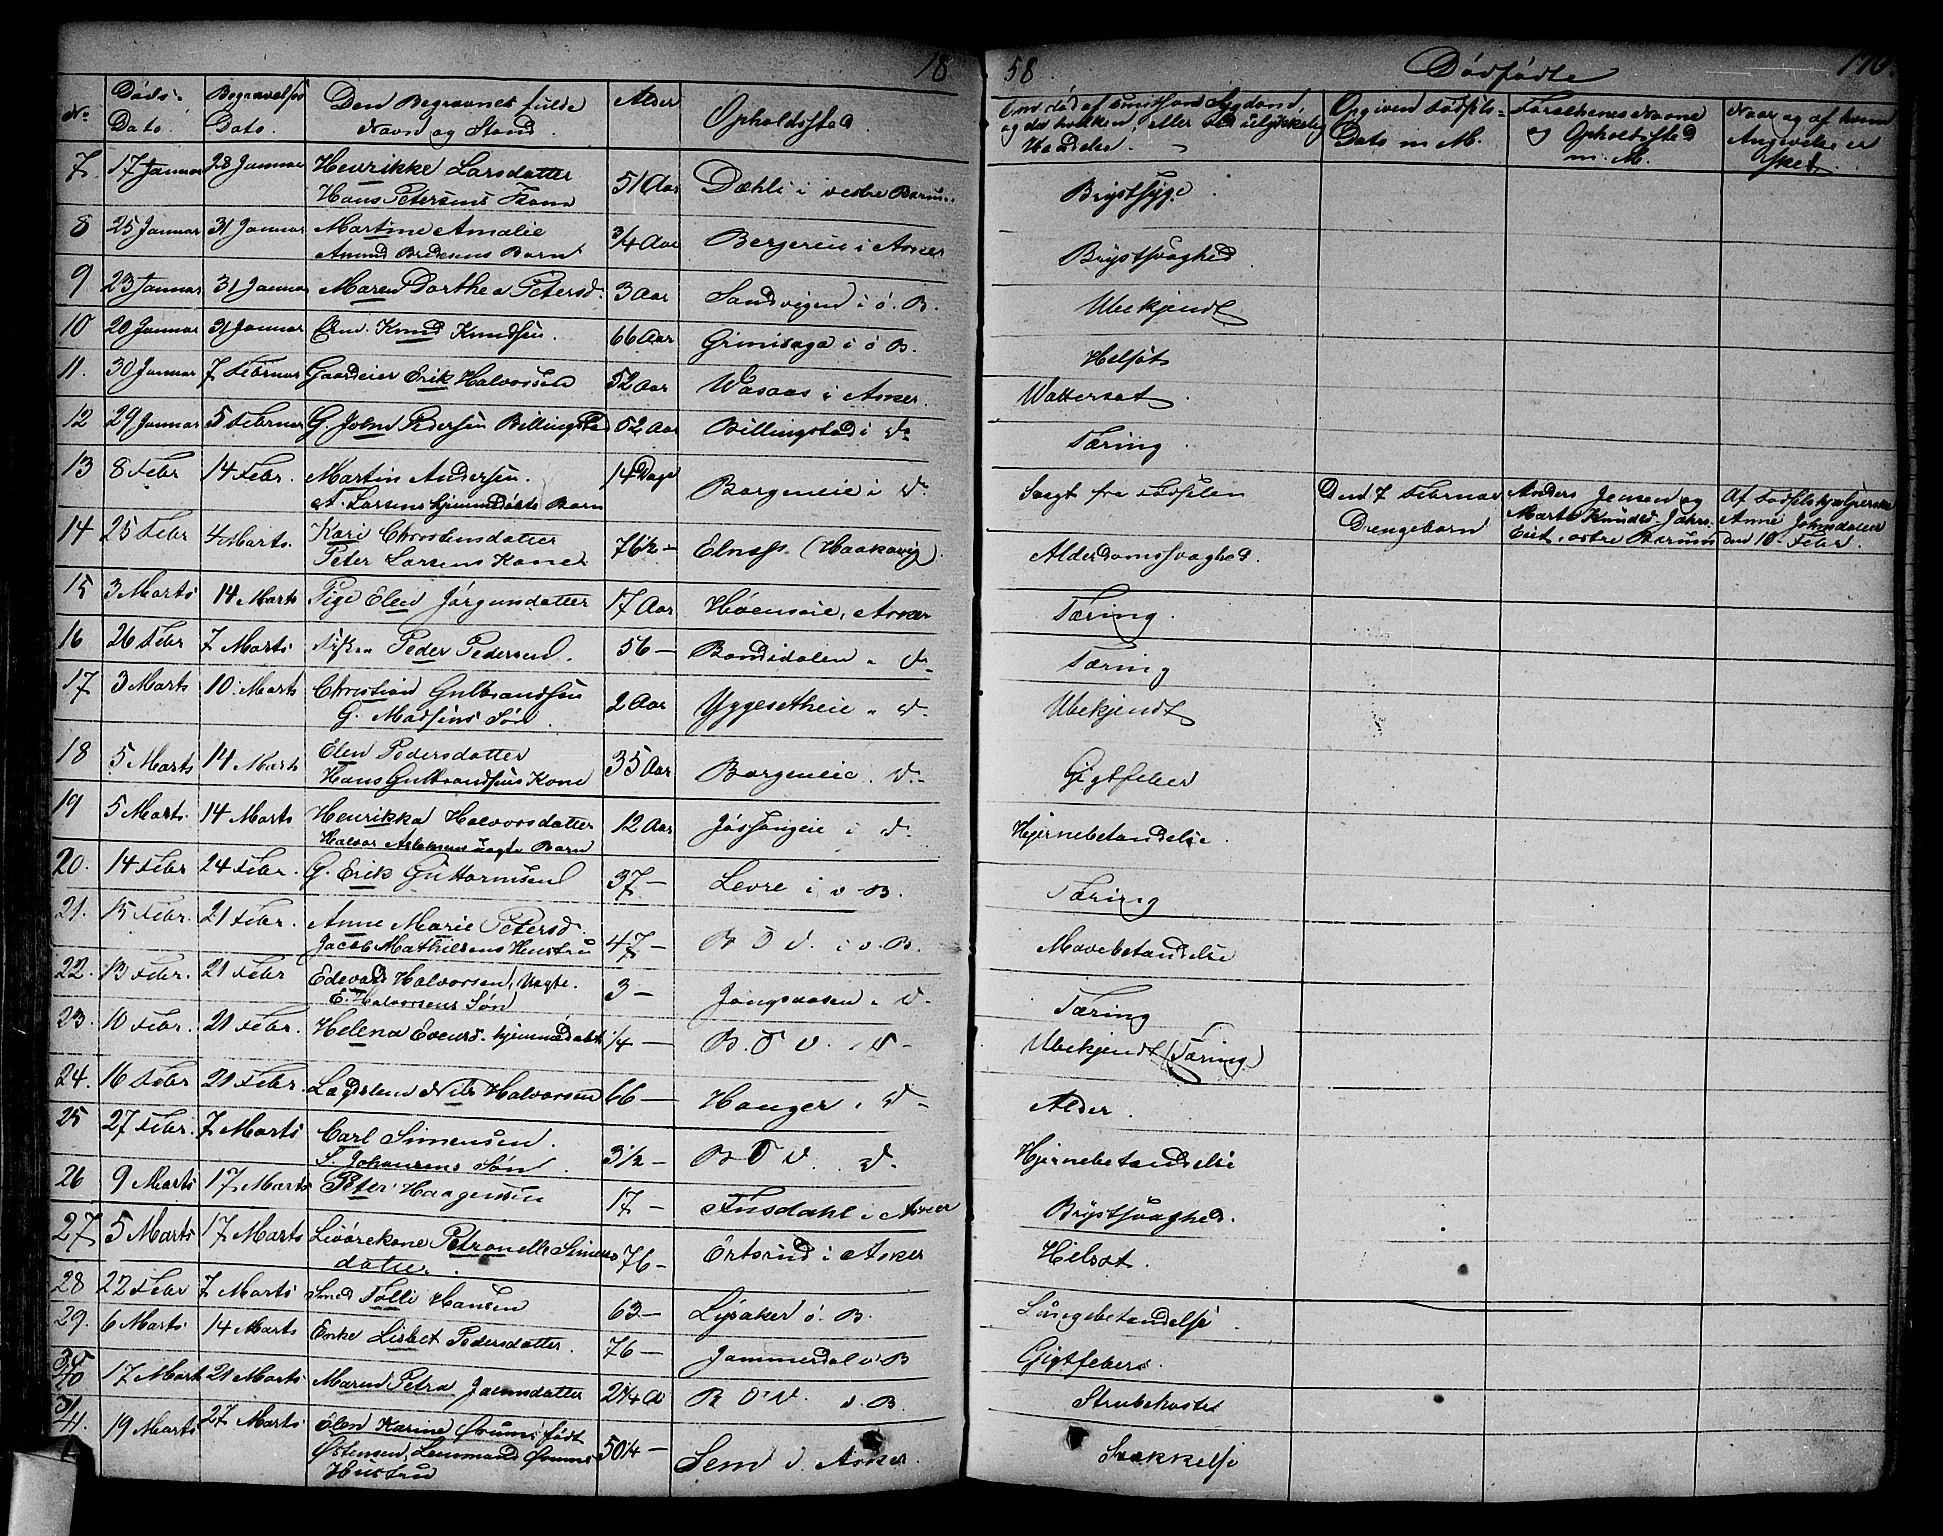 18
58.
Dødfødte
170.
No
Døds-
Dato.
Begravelses
Dato.
Den Begravnes fulde
Navn og Stand.
Alder
Opholdssted.
Om død af smitsom Sygdom,
og da hvilken, eller ved ulykkelig
Hændelse.
Opgiven Fødsels-
Dato m. M.
Forældrenes Navne
og Opholdssted
m. M.
Naar og af hvem
Angivelse er
skeet.
7. 17 Januar 28 Januar Henrikke Larsdatter
Hans Petersens Kone 51 Aar Dæhli i vestre Bærum. Brystsyge.
8 25 Januar 31 Januar Martine Amalie
Amund Bredesens Barn 3/4 Aar Bergereie i Asker Brystsvaghed
9 23 Januar 31 Januar Maren Dorthea Petersd. 3 Aar Sandvigen i ø. B. Ubekjendt
10 20 Januar 31 Januar Em. Knud Knudsen. 66 Aar Grinisaga i ø B. Helsot
11. 30 Januar 7 Februar Gaardeier Erik Halvorsen 52 Aar Wasaas i Asker. Wattersot.
12 29 Januar 5 Februar G. John Pedersen Billingstad 52 Aar Billingstad i do Tæring.
13 8 Febr 14 Febr. Martin Andersen.
A. Larsens hjemmedøbte Barn 14 Dage Borgeneie i do. Svagt fra Fødselen
Den 7 Februar
Drengebarn
Anders Jensen og
Marte Knudsd. Jahrs-
Eiet, østre Bærum
Af Fødselshjælperske
Anne Johnsdatter
den 10 Febr.
14 25 Febr 4 Marts. Kari Christensdatter
Peter Larsens Kone 76 1/2 — Elnæs (Haakavig). Alderdomssvaghed.
15 3 Marts 14 Marts Pige Elen Jørgensdatter 17 Aar Høenseie, Asker Tæring.
16 26 Febr 7 Marts Fisker Peder Pedersen. 56 — Bondidalen " do Tæring
17 3 Marts 10 Marts Christian Gulbrandsen
G. Madsens Søn. 2 Aar Yggesetheie " do Ubekjendt
18 5 Marts 14 Marts Elen Pedersdatter
Hans Gulbrandsens Kone 35 Aar Borgeneie. do. Gigtfeber
19 5 Marts. 14 Marts Henrikka Halvorsdatter
Halvor Aslaksens uægte Barn 12 Aar Jossangeie i do Hjernebetændelse.
20. 14 Febr 24 Febr. G. Erik Guttormsen 37 — Levre i v B. Tæring
21. 15 Febr. 21 Febr. Anne Marie Petersd.
Jacob Mathisens Hustru 47 — B Ø V. i v. B. Mavebetændelse
22. 13 Febr. 21 Febr Edevard Halvorsen, Uægte.
E. Halvorsens Søn 3 — Jongsaasen " do. Tæring
23. 10 Febr. 21 Febr. Helena Eversd. hjemmedøbt 1/4 — B. Ø V. " do Ubekjendt (Tæring)
24. 16 Febr 21 Febr. Lægdslem Nils Halvorsen 66 — Hauger. do Alder.
25 27 Febr. 7 Marts Carl Simensen.
S. Johansens Søn. 3 1/2 — B Ø V. do. Hjernebetændelse
26 9 Marts 17 Marts Peter Haagensen 17 — Fusdahl i Asker Brystsvaghed.
27 5 Marts 17 Marts Livørekone Petronelle Simens
datter. 76 — Ørtsrud i Asker Helsot.
28 22 Febr 7 Marts Smed Tolli Hansen 63 — Lysaker ø. B. Lungebetændelse.
29. 6 Marts 14 Marts Enke Lisbet Pedersdatter. 76 — Jammerdal v B Gigtfeber.
30 40 17 Mart 21 Marts Maren Petra Jørensdatter 2 1/4 A B Ø V. v. B. Strubehoste
31 41. 19 Marts 27 Marts Elen Karine Ørums født
Østensen, Lensmand Ørums
Hustru 50 1/4 — Sem i Asker. Svækkelse